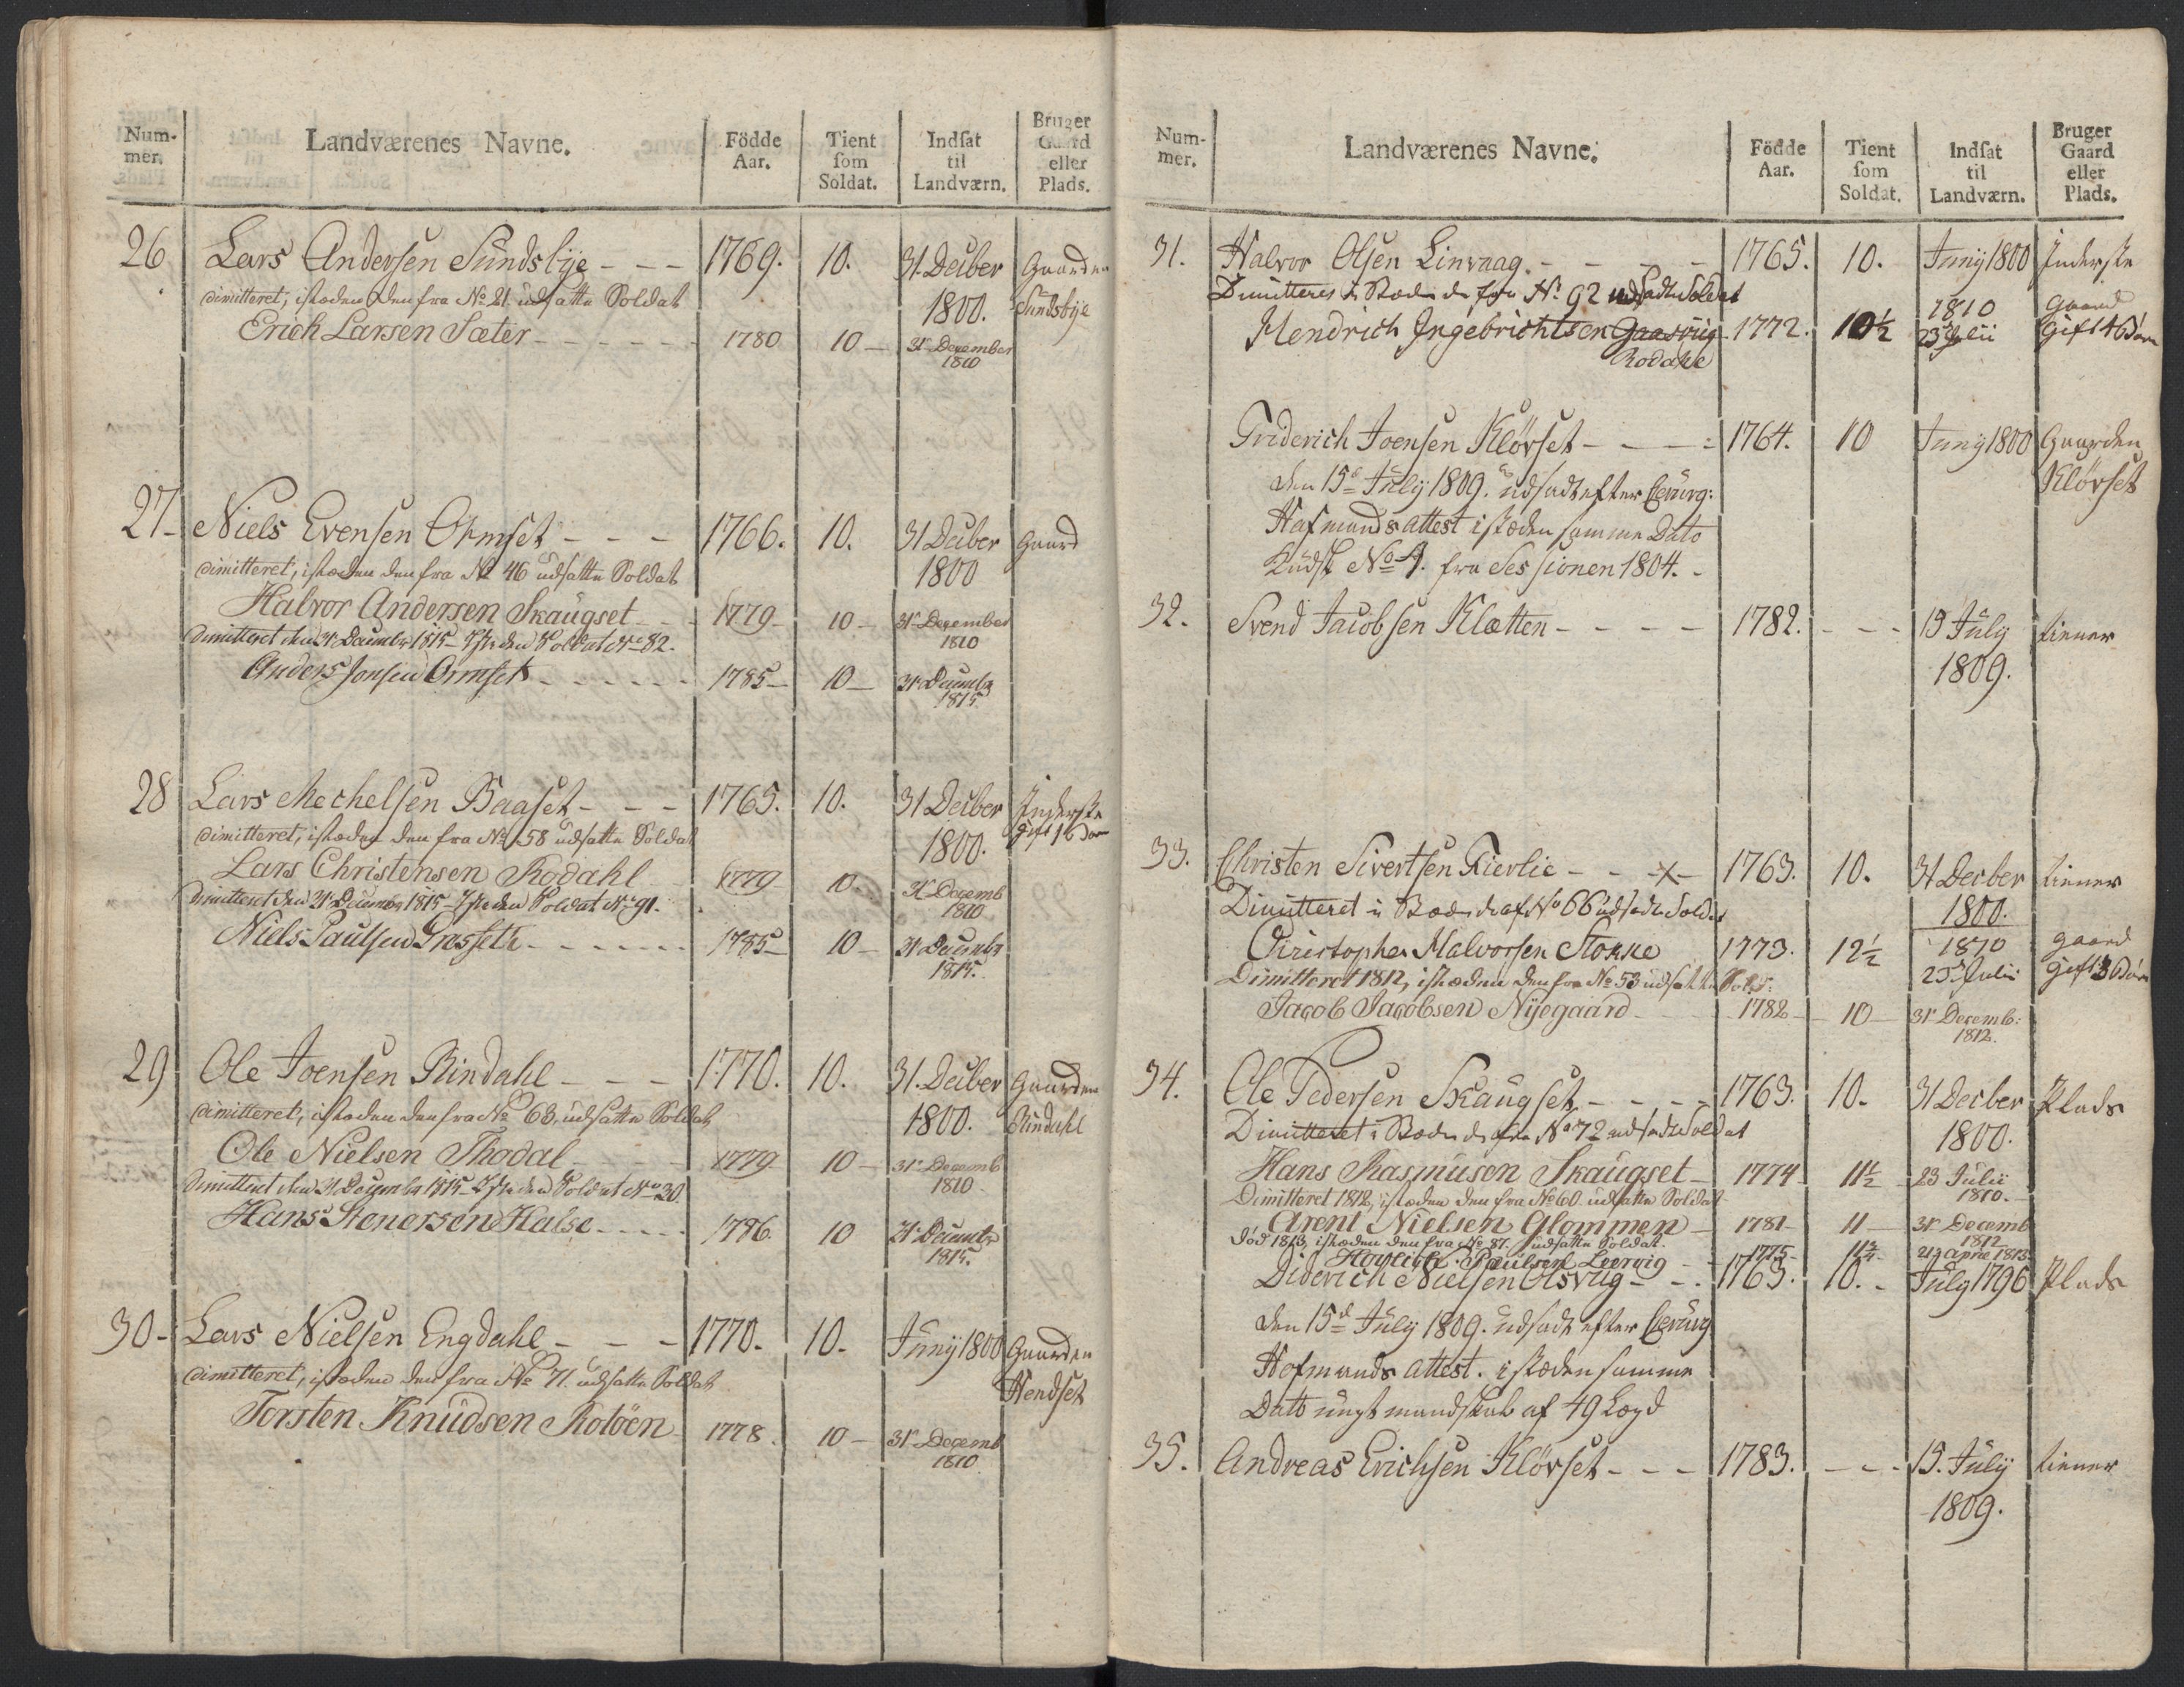 Num-
mer.
Landværenes Navne.
Födde
Aar.
Tient
som
Soldat.
Indsat
til
Landværn.
Bruger
Gaard
eller
Plads.
26 Lars Andersen Sundsbye - - - 1769. 10. 31. Decber Gaarden
dimitteret, isteden den fra No 21. udsatte Soldat 1800. Sundsbye
Erich Larsen Sæter - - - - - - 1780 10 - 31 December
1810
27 - Niels Evensen Ormset - - - 1766. 10. 31 Decber Gaard
dimitteret, isteden den fra No 46 udsatte Soldat 1800
Halvor Andersen Skaugset - - - 1779 - 10 - 31 December
dimitteret den 31 December 1815 - Isteden Soldat No 82. 1810
Anders Jonsen Ormset - - - - - - 1785 - 10 - 31 Decembr
1815.
28 Lars Mechelsen Baaset - - - 1765. 10. 31 Decber Inderste
dimitteret, isteden den fra No 58 udsatte Soldat 1800. gift 1 Barn
Lars Christensen Rodahl - 1779 - 10. 31 Decemb
Dimitteret den 31 December 1815 - Isteden Soldat No 91. 1810
Niels Paulsen Græsseth - - - - - - 1785 - 10 - 31 Decembr
1815.
29 Ole Joensen Rindahl - - - 1770. 10. 31. Decber Gaarden
dimitteret, isteden den fra No 63, udsatte Soldat 1800. Rindahl
Ole Nielsen Thodal - - - - 1779 10 - 31 Decemb
Dimitteret den 31 December 1815 - Isteden Soldat No 30. 1810
Hans Stenersen Halse - - - - 1796. 10 31 Decembr
1815.
30 - Lars Nielsen Engdahl - - - 1770. 10. Juny 1800 Gaarden
dimitteret, isteden den fra No 71. udsatte Soldat Hendset
Torsten Knudsen Rotöen 1778. 10 - 31 Decemb
1810
Num-
mer.
Landværenes Navne.
Födde
Aar.
Tient
som
Soldat.
Indsat
til
Landværn.
Bruger
Gaard
eller
Plads.
31. Halvor Olsen Linvaag. - - - - 1765. 10. Juny 1800 Inderste
Dimitteres i Steden de fra No 92 udsadte Soldat 1810 Gaard
Hendrich Ingebrichtsen Gaasvig - 1772. 10½ 23 Julii Gift 4 Børn
Rodahl
Friderich Joensen Kløvset - - - - 1764. 10 Juny 1800 Gaarden
den 15d July 1809. udsadt efter Cerurg: Kløvset
Hafmands attest i steden samme Dato
Kudsk No 4. fra Sessionen 1804. -
32. Svend Jacobsen Kletten - - - - 1782. - - - 15 July tiener
1809.
33. Christen Sivertsen Tierlie - - x - 1763. 10. 31 Decber tiener
Dimitteret i Steden de af No 66 udsadte Soldat 1800.
Christopher Halvorsen Stokke 1773. 12½ 1810 gaard
Dimitteret 1812, isteden den fra No 53 udsatte Sold: 23 Julii gift 3 Børn
Jacob Jacobsen Nyegaard - - 1782 - 10 - 31 Decemb:
1812.
34. Ole Pedersen Skaugset - - - - 1763. 10. 31 Decber Plads
Dimitteret i Steden de fra No 72 udsadte Soldat 1800.
Hans Rasmusen Skaugset - 1774 - 11½ - 23 Julii
Dimitteret 1812, isteden den fra No 60 udsatte Soldat 1810. -
Arent Nielsen Glommen - 1781 - 11 - 31 Decemb
död 1813, isteden den fra No 87. udsatte Soldat 1812
Paulsen Leervig - - 1775 - 11¾ - 21 April 1813.
Diderich Nielsen Olsvug - - . 1763. 10. - July 1796 Plads
den 15d July 1809. udsadt efter Cerurg
Hofmands attest. i steden samme
Dato ungt mandskab af 49 Lægd
35. Andreas Erichsen Kløvset - - - 1783. - - - 15. July tiener
1809.